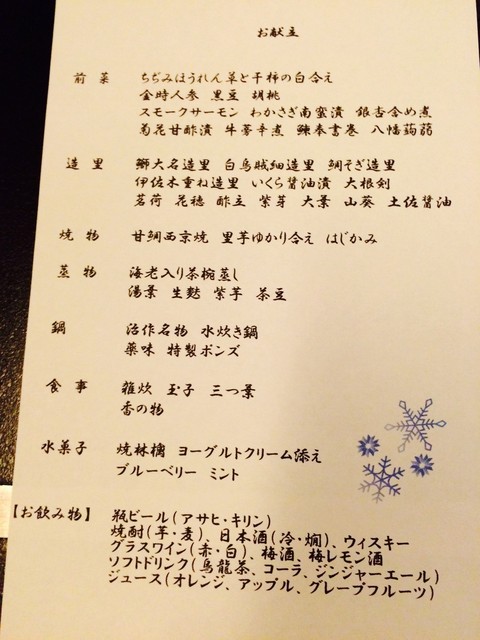 お献立
前菜 ちぢみほうれん草と干柿の白合え
金時人参 黒豆 胡桃
スモークサーモン わかさぎ南蜜漬 銀杏含め煮
菊花甘酢漬 牛蒡辛煮 鰊奉書巻 八幡蒟蒻
造里 鰤大名造里 白烏賊細造里 鯛そぎ造里
伊佐木重ね造里 いくら醤油漬 大根剣
茗荷 花穂 酢立 紫芽 大葉 山葵 土佐醤油
焼物 甘鯛西京焼 里芋ゆかり合え はじかみ
蒸物 海老入り茶椀蒸し
湯葉 生麩 紫芋 茶豆
鍋 治作名物 水炊き鍋
薬味 特製ポンズ
食事 雑炊 玉子 三つ葉
香の物
水菓子 焼林檎 ヨーグルトクリーム添え
ブルーベリー ミント
【お飲み物】 瓶ビール(アサヒ・キリン)
焼酎(芋・麦)、日本酒(冷・燗)、ウィスキー
グラスワイン(赤・白)、梅酒、梅レモン酒
ソフトドリンク(烏龍茶、コーラ、ジンジャーエール)
ジュース(オレンジ、アップル、グレープフルーツ)